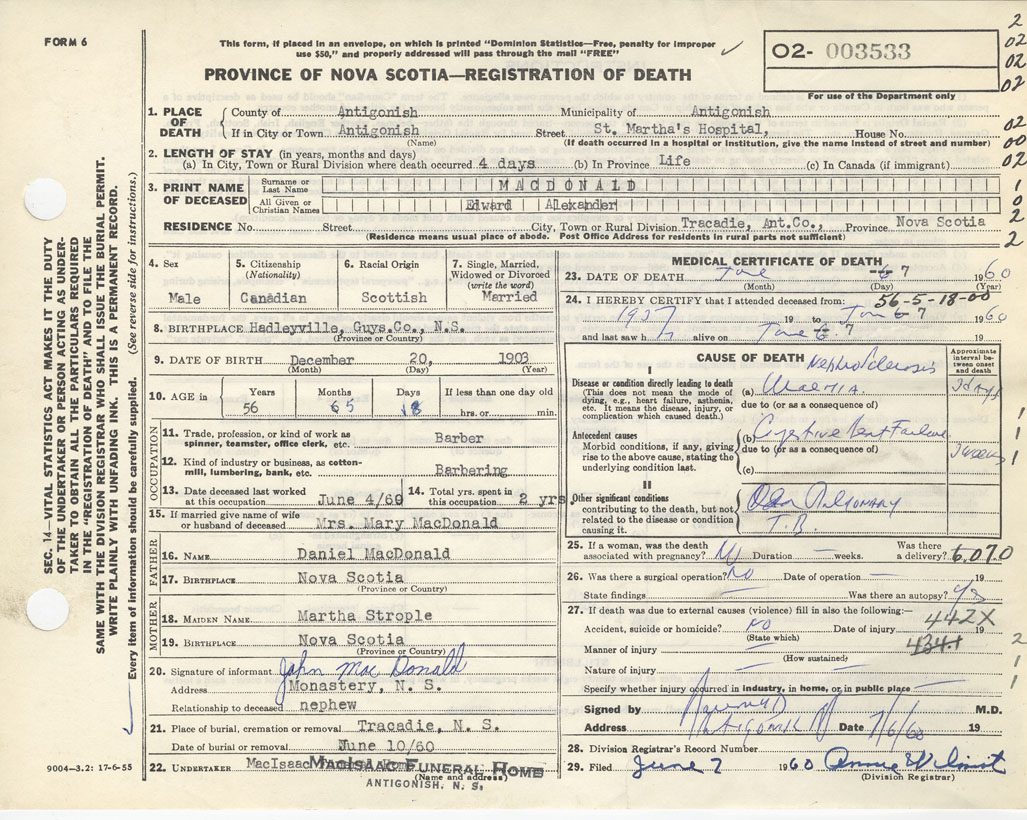 FORM 6
This form, if placed in an envelope, on which is printed "Dominion Statistics—Free, penalty for improper
use $50," and properly addressed will pass through the mail "FREE"
O2- 003533
For use of the Department only
PROVINCE OF NOVA SCOTIA—REGISTRATION OF DEATH
1. PLACE OF DEATH County of Antigonish Municipality of Antigonish
If in City or Town Antigonish (Name) Street St. Martha's Hospital, House No.
(If death occurred in a hospital or institution, give the name instead of street and number)
2. LENGTH OF STAY (in years, months and days)
(a) In City, Town or Rural Division where death occurred 4 days (b) In Province Life (c) In Canada (if immigrant)
3. PRINT NAME OF DECEASED Surname or Last Name MACDONALD
All Given or Christian Names Edward Alexander
RESIDENCE No. Street City, Town or Rural Division Tracadie, Ant.Co., Province Nova Scotia
(Residence means usual place of abode. Post Office Address for residents in rural parts not sufficient)
4. Sex Male
5. Citizenship (Nationality) Canadian
6. Racial Origin Scottish
7. Single, Married, Widowed or Divorced (write the word) Married
8. BIRTHPLACE Hadleyville, Guys.Co., N.S.
(Province or Country)
9. DATE OF BIRTH December 20, 1903
(Month) (Day) (Year)
10. AGE in Years 56 Months 5 Days 18 If less than one day old hrs. or min.
OCCUPATION
11. Trade, profession, or kind of work as spinner, teamster, office clerk, etc. Barber
12. Kind of industry or business, as cotton-mill, lumbering, bank, etc. Barbering
13. Date deceased last worked at this occupation June 4/60 14. Total yrs. spent in this occupation 2 yrs
15. If married give name of wife or husband of deceased Mrs. Mary MacDonald
FATHER
16. NAME Daniel MacDonald
17. BIRTHPLACE Nova Scotia
(Province or Country)
MOTHER
18. MAIDEN NAME Martha Strople
19. BIRTHPLACE Nova Scotia
(Province or Country)
20. Signature of informant John MacDonald
Address Monastery, N. S.
Relationship to deceased nephew
21. Place of burial, cremation or removal Tracadie, N. S.
Date of burial or removal June 10/60
22. UNDERTAKER MacIsaac MACISAAC FUNERAL HOME
(Name and address)
ANTIGONISH, N. S.
MEDICAL CERTIFICATE OF DEATH
23. DATE OF DEATH June 7 1960
(Month) (Day) (Year)
56-5-18-00
24. I HEREBY CERTIFY that I attended deceased from:
1937 19 to June 7 1960
and last saw h alive on June 7 19
CAUSE OF DEATH Nephrosclerosis
Approximate interval between onset and death
I
Disease or condition directly leading to death
(This does not mean the mode of dying, e.g., heart failure, asthenia, etc. It means the disease, injury, or complication which caused death.)
(a) Uraemia 3 days
due to (or as a consequence of)
Antecedent causes
Morbid conditions, if any, giving rise to the above cause, stating the underlying condition last.
(b) Congestive Heart Failure 3 weeks
due to (or as a consequence of)
(c)
II
Other significant conditions
contributing to the death, but not related to the disease or condition causing it.
Old Pulmonary
T.B.
25. If a woman, was the death associated with pregnancy? No Duration — weeks. Was there a delivery? 6.070
26. Was there a surgical operation? No Date of operation — 19
State findings — Was there an autopsy? Yes
27. If death was due to external causes (violence) fill in also the following:—
442X
Accident, suicide or homicide? No Date of injury 19
(State which) 434.1
Manner of injury —
(How sustained)
Nature of injury —
Specify whether injury occurred in industry, in home, or in public place —
Signed by M.D.
Address Antigonish Date 7/6/60 19
28. Division Registrar's Record Number
29. Filed June 7 1960
(Division Registrar)
SEC. 14—VITAL STATISTICS ACT MAKES IT THE DUTY
OF THE UNDERTAKER OR PERSON ACTING AS UNDER-
TAKER TO OBTAIN ALL THE PARTICULARS REQUIRED
IN THE "REGISTRATION OF DEATH" AND TO FILE THE
SAME WITH THE DIVISION REGISTRAR WHO SHALL ISSUE THE BURIAL PERMIT.
WRITE PLAINLY WITH UNFADING INK. THIS IS A PERMANENT RECORD.
Every item of information should be carefully supplied. (See reverse side for instructions.)
9004—3.2: 17-6-55
2
02
02
02
02
00
02
1
0
2
2
1
1
1
2
1
1